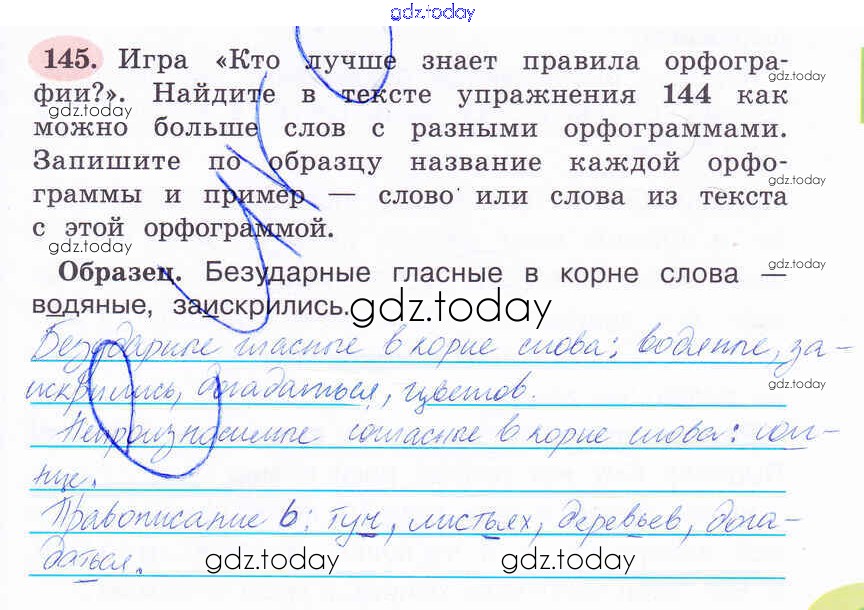 gdz.today
145. Игра «Кто лучше знает правила орфогра-
фии?». Найдите в тексте упражнения 144 как
можно больше слов с разными орфограммами.
Запишите по образцу название каждой орфо-
граммы и пример — слово или слова из текста
с этой орфограммой.
Образец. Безударные гласные в корне слова —
водяные, заискрились.
Безударные гласные в корне слова: водяные, за-
искрились, догадаться, цветов.
Непроизносимые согласные в корне слова: сол-
нце.
Правописание ь: туч, листьях, деревьев, дога-
даться.
gdz.today
gdz.today
gdz.today
gdz.today
gdz.today
gdz.today
gdz.today
gdz.today
gdz.today
gdz.today
gdz.today